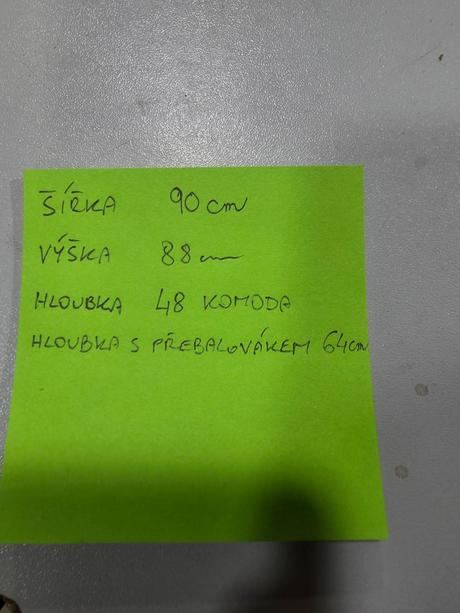 ŠÍŘKA 90 cm
VÝŠKA 88 cm
HLOUBKA 48 KOMODA
HLOUBKA S PŘEBALOVÁKEM 64cm